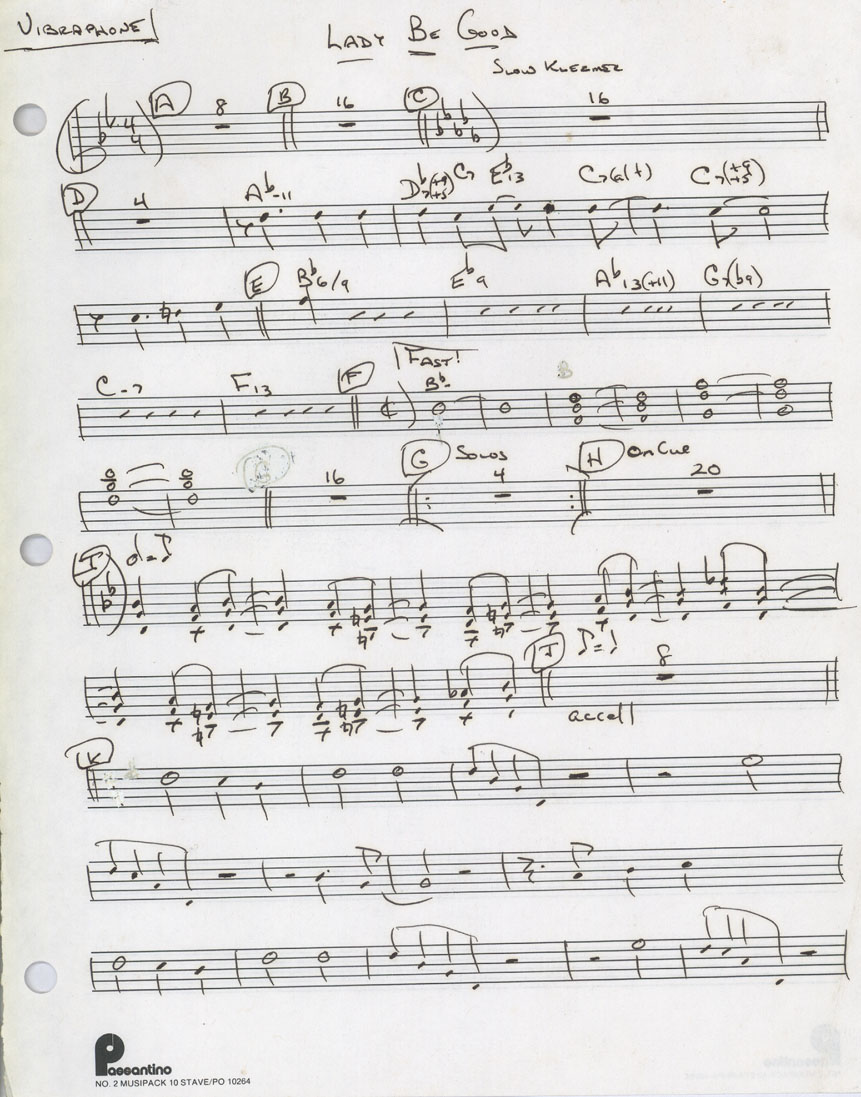 VIBRAPHONE
LADY BE GOOD
SLOW KLEZMER
A 8 B 16 C 16
4
4
D 4 A♭-11 D♭7(+9 +5) C7 E♭13 C7(alt) C7(+9 +5)
E B♭6/9 E♭9 A♭13(+11) G7(♭9)
C-7 F13 F FAST! B♭-
16 G SOLOS 4 H ON CUE 20
I
J 8
accell
K
Passantino
NO. 2 MUSIPACK 10 STAVE/PO 10264